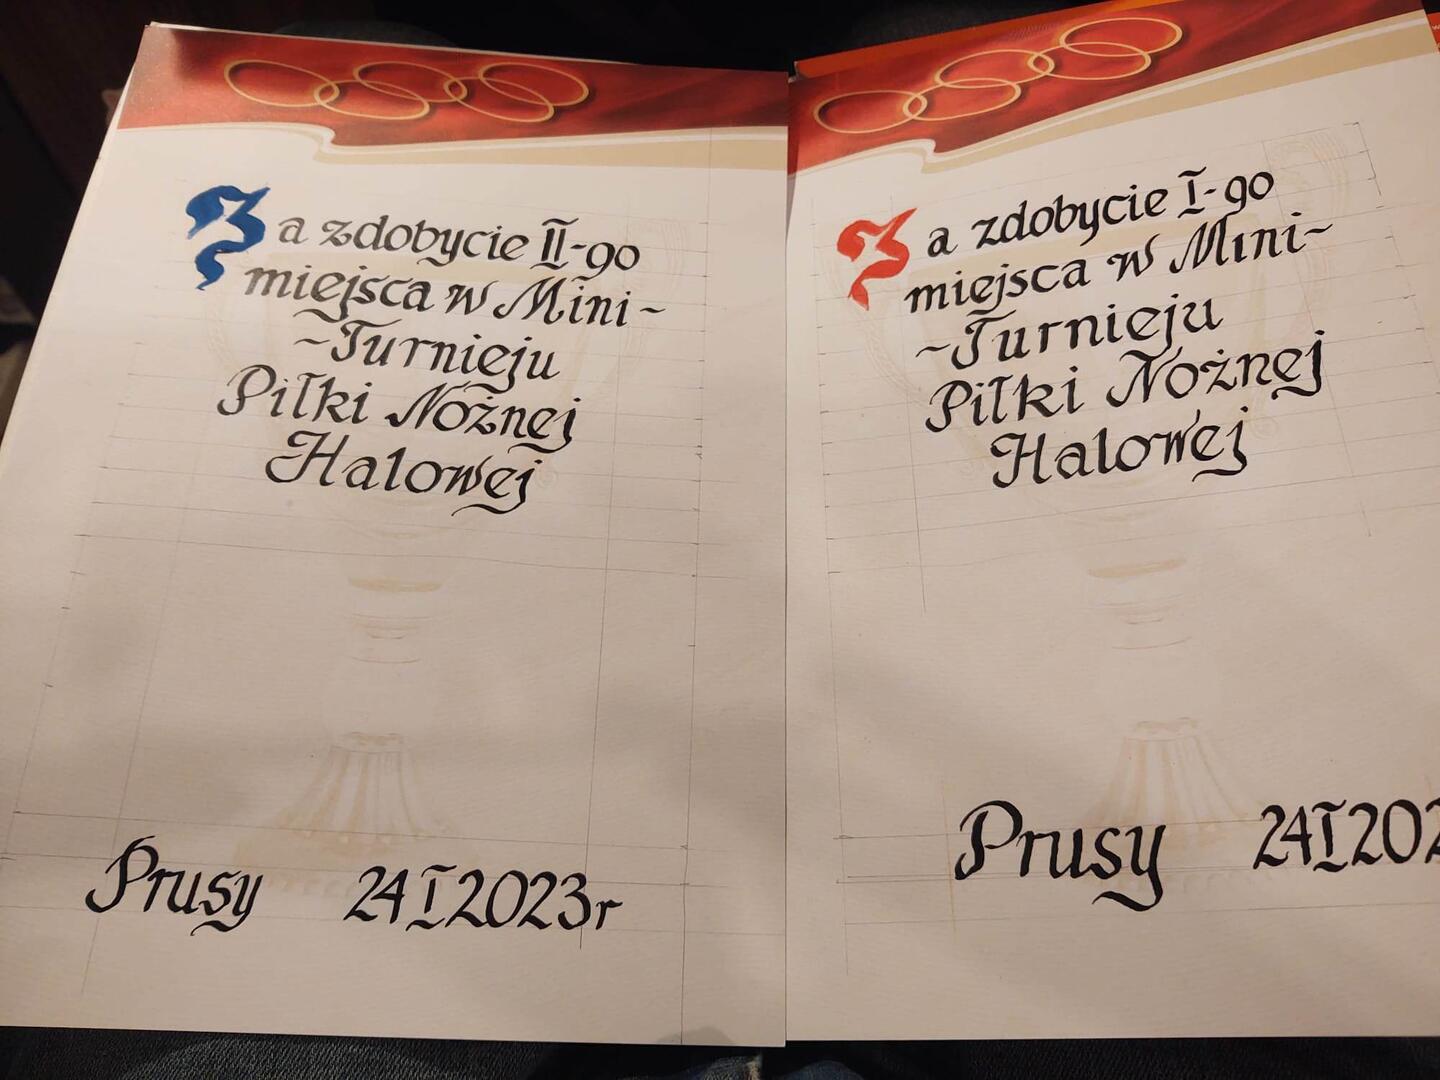 Za zdobycie II-go
miejsca w Mini-
-Turnieju
Piłki Nożnej
Halowej
Prusy 24 I 2023r
Za zdobycie I-go
miejsca w Mini-
-Turnieju
Piłki Nożnej
Halowej
Prusy 24 I 202